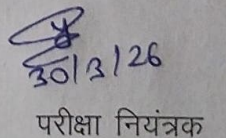 30/3/26
परीक्षा नियंत्रक